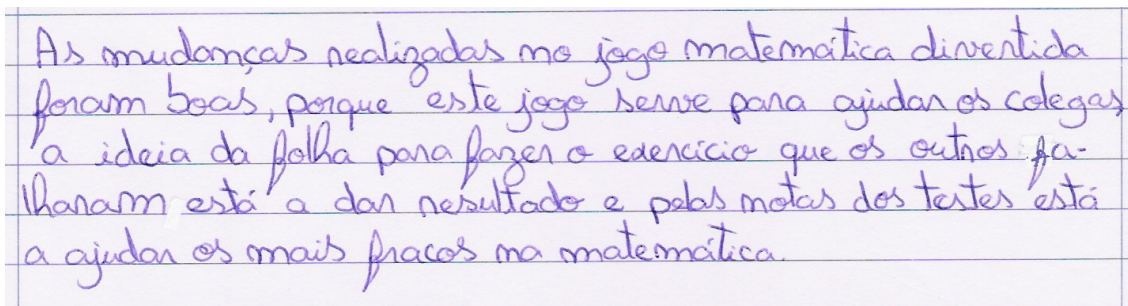 As mudanças realizadas no jogo matemática divertida
foram boas, porque este jogo serve para ajudar os colegas,
a ideia da folha para fazer o exercício que os outros fa-
lharam está a dar resultado e pelas notas dos testes está
a ajudar os mais fracos na matemática.